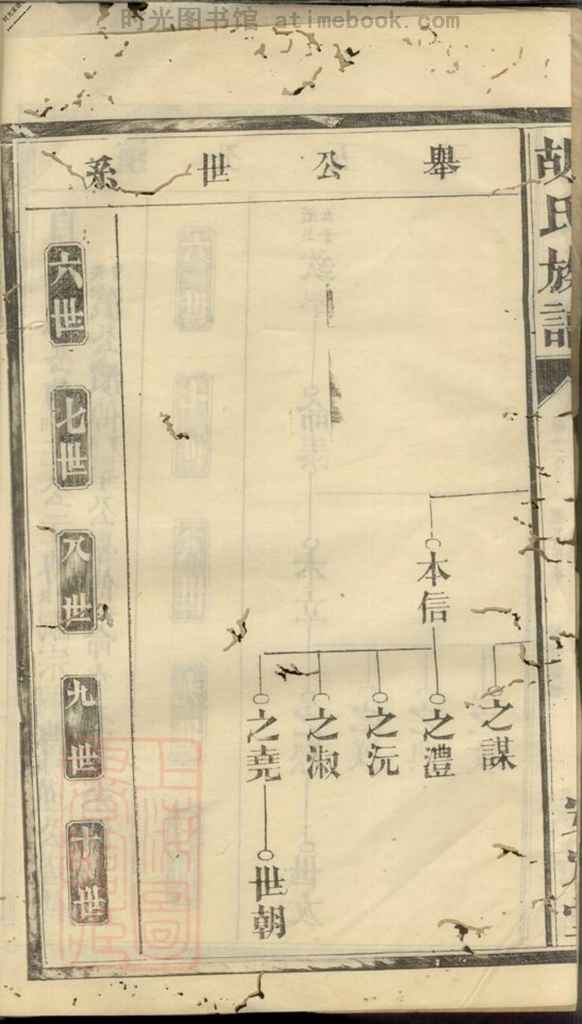 时光图书馆 atimebook.com
胡氏族譜
舉公世系
本信
之謀
之澧
之沅
之淑
之堯
世朝
六世
七世
八世
九世
十世